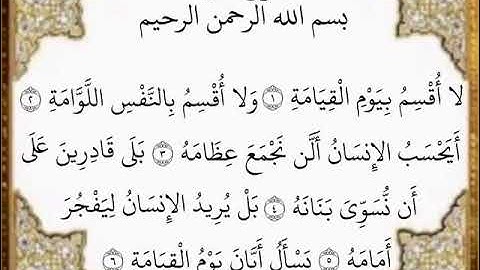 بسم الله الرحمن الرحيم
لا أُقْسِمُ بِيَوْمِ الْقِيَامَةِ ۝١ وَلا أُقْسِمُ بِالنَّفْسِ اللَّوَّامَةِ ۝٢
أَيَحْسَبُ الإِنسَانُ أَلَّن نَجْمَعَ عِظَامَهُ ۝٣ بَلَى قَادِرِينَ عَلَى
أَن نُّسَوِّيَ بَنَانَهُ ۝٤ بَلْ يُرِيدُ الإِنسَانُ لِيَفْجُرَ
أَمَامَهُ ۝٥ يَسْأَلُ أَيَّانَ يَوْمُ الْقِيَامَةِ ۝٦